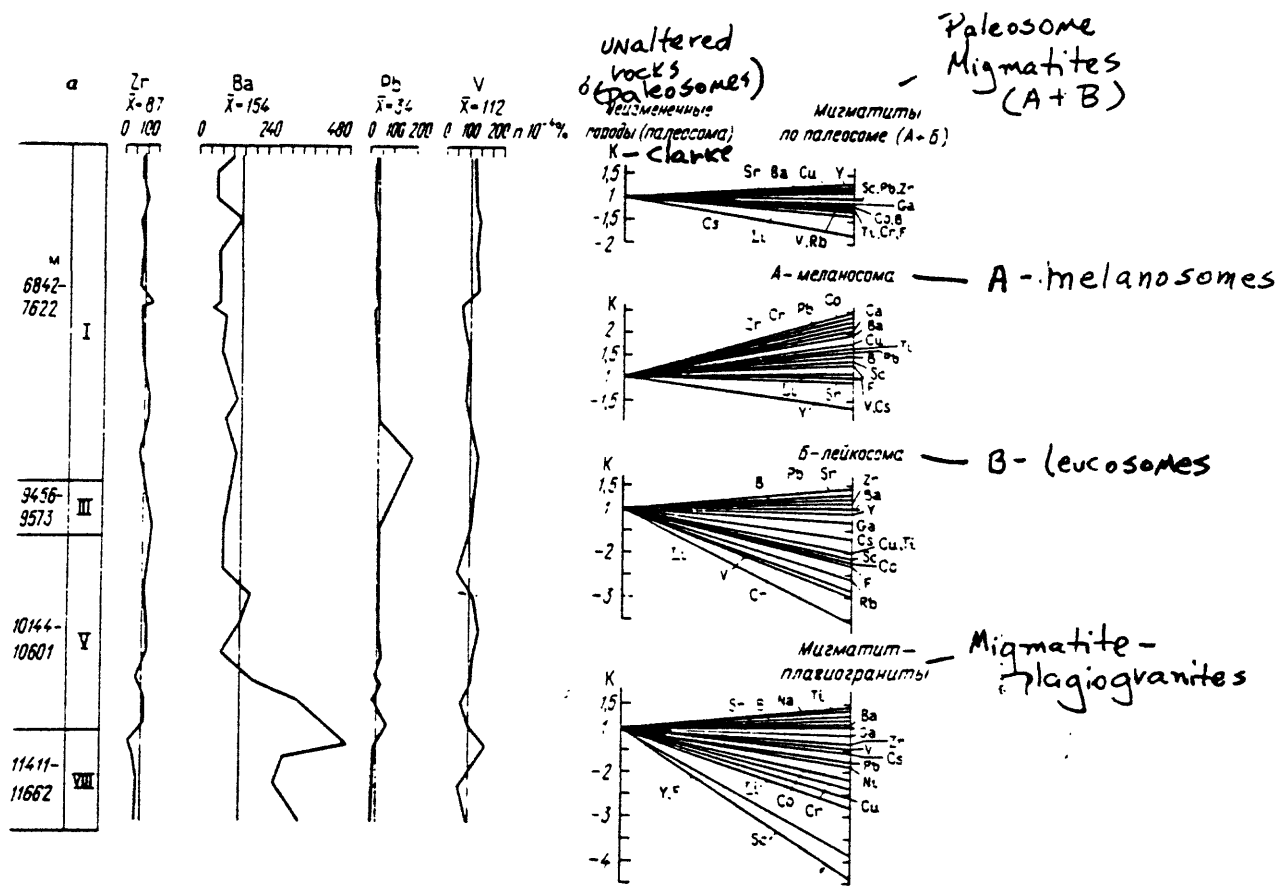 а
Zr
X̄=87
0 100
Ba
X̄=154
0 240 480
Pb
X̄=34
0 100 200
V
X̄=112
0 100 200 n·10⁻⁴%
м
6842-
7622
I
9456-
9573
III
10144-
10601
V
11411-
11662
VIII
unaltered
rocks
(paleosomes)
Неизмененные
породы (палеосома)
Paleosome
Migmatites
(A + B)
Мигматиты
по палеосоме (А+Б)
К – Clarke
1,5
1
-1,5
-2
Sr Ba Cu Y
Sc,Pb,Zr
Ga
Co,B
Ti,Cr,F
Cs Li V,Rb
А – меланосома — A - melanosomes
К
2
1,5
1
-1,5
Zr Cr Pb Co
Ba
Cu
Sc
F
V,Cs
Sr
Y
Б – лейкосома — B - leucosomes
К
1,5
1
-2
-3
B Pb Sr
Zr
Ba
Y
Ga
Cs Cu,Ti
Sc
Co
F
Rb
Li
V
Мигматит-
плагиограниты
Migmatite -
plagiogranites
К
1,5
1
-2
-3
-4
Na
Ba
Zr
V
Cs
Pb
Cu
Y,F
Co
Cr
Sc